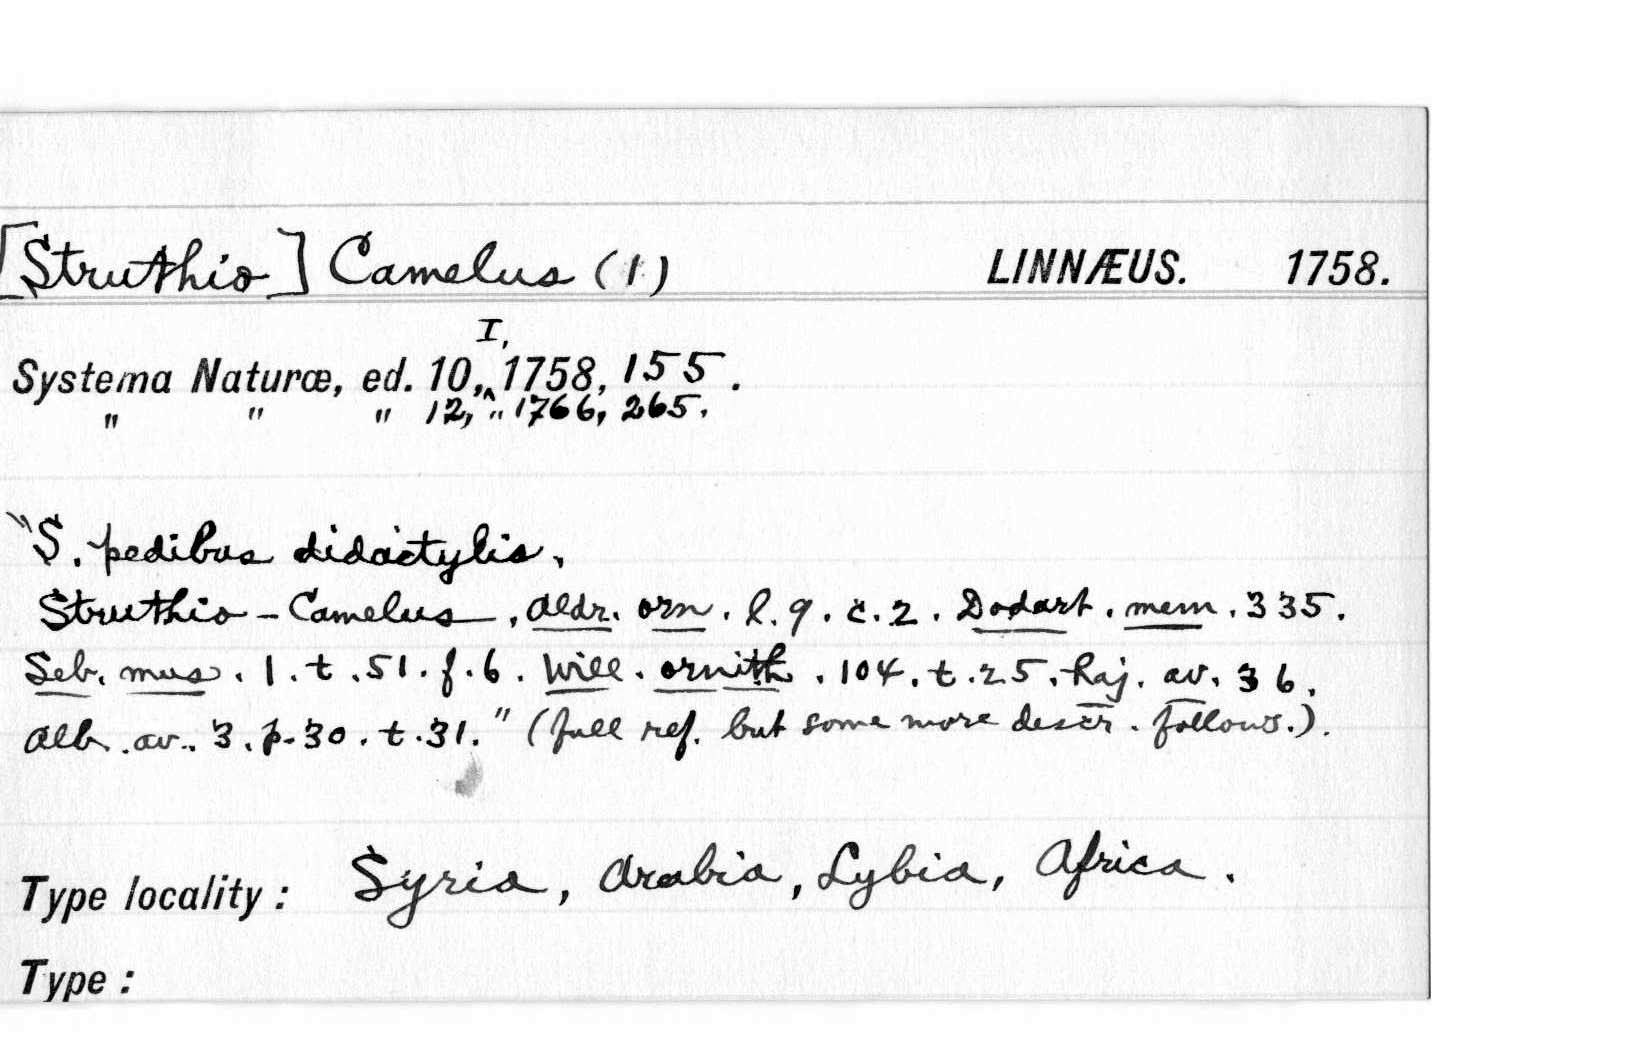 [Struthio] Camelus (1) LINNÆUS. 1758.
I,
Systema Naturæ, ed. 10,^ 1758, 155.
" " " 12, " 1766, 265.
"S. pedibus didactylis,
Struthio-Camelus, Aldr. orn. l. 9. c. 2. Dodart. mem. 335.
Seb. mus. 1. t. 51. f. 6. Will. ornith. 104. t. 25. Raj. av. 36.
Alb. av. 3. p. 30. t. 31." (full ref. but some more descr. follows.).
Type locality: Syria, Arabia, Lybia, Africa.
Type: